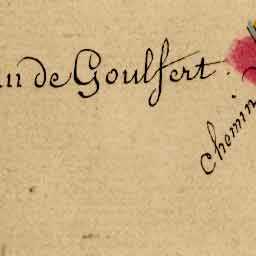 de Goulfert.
Chemin